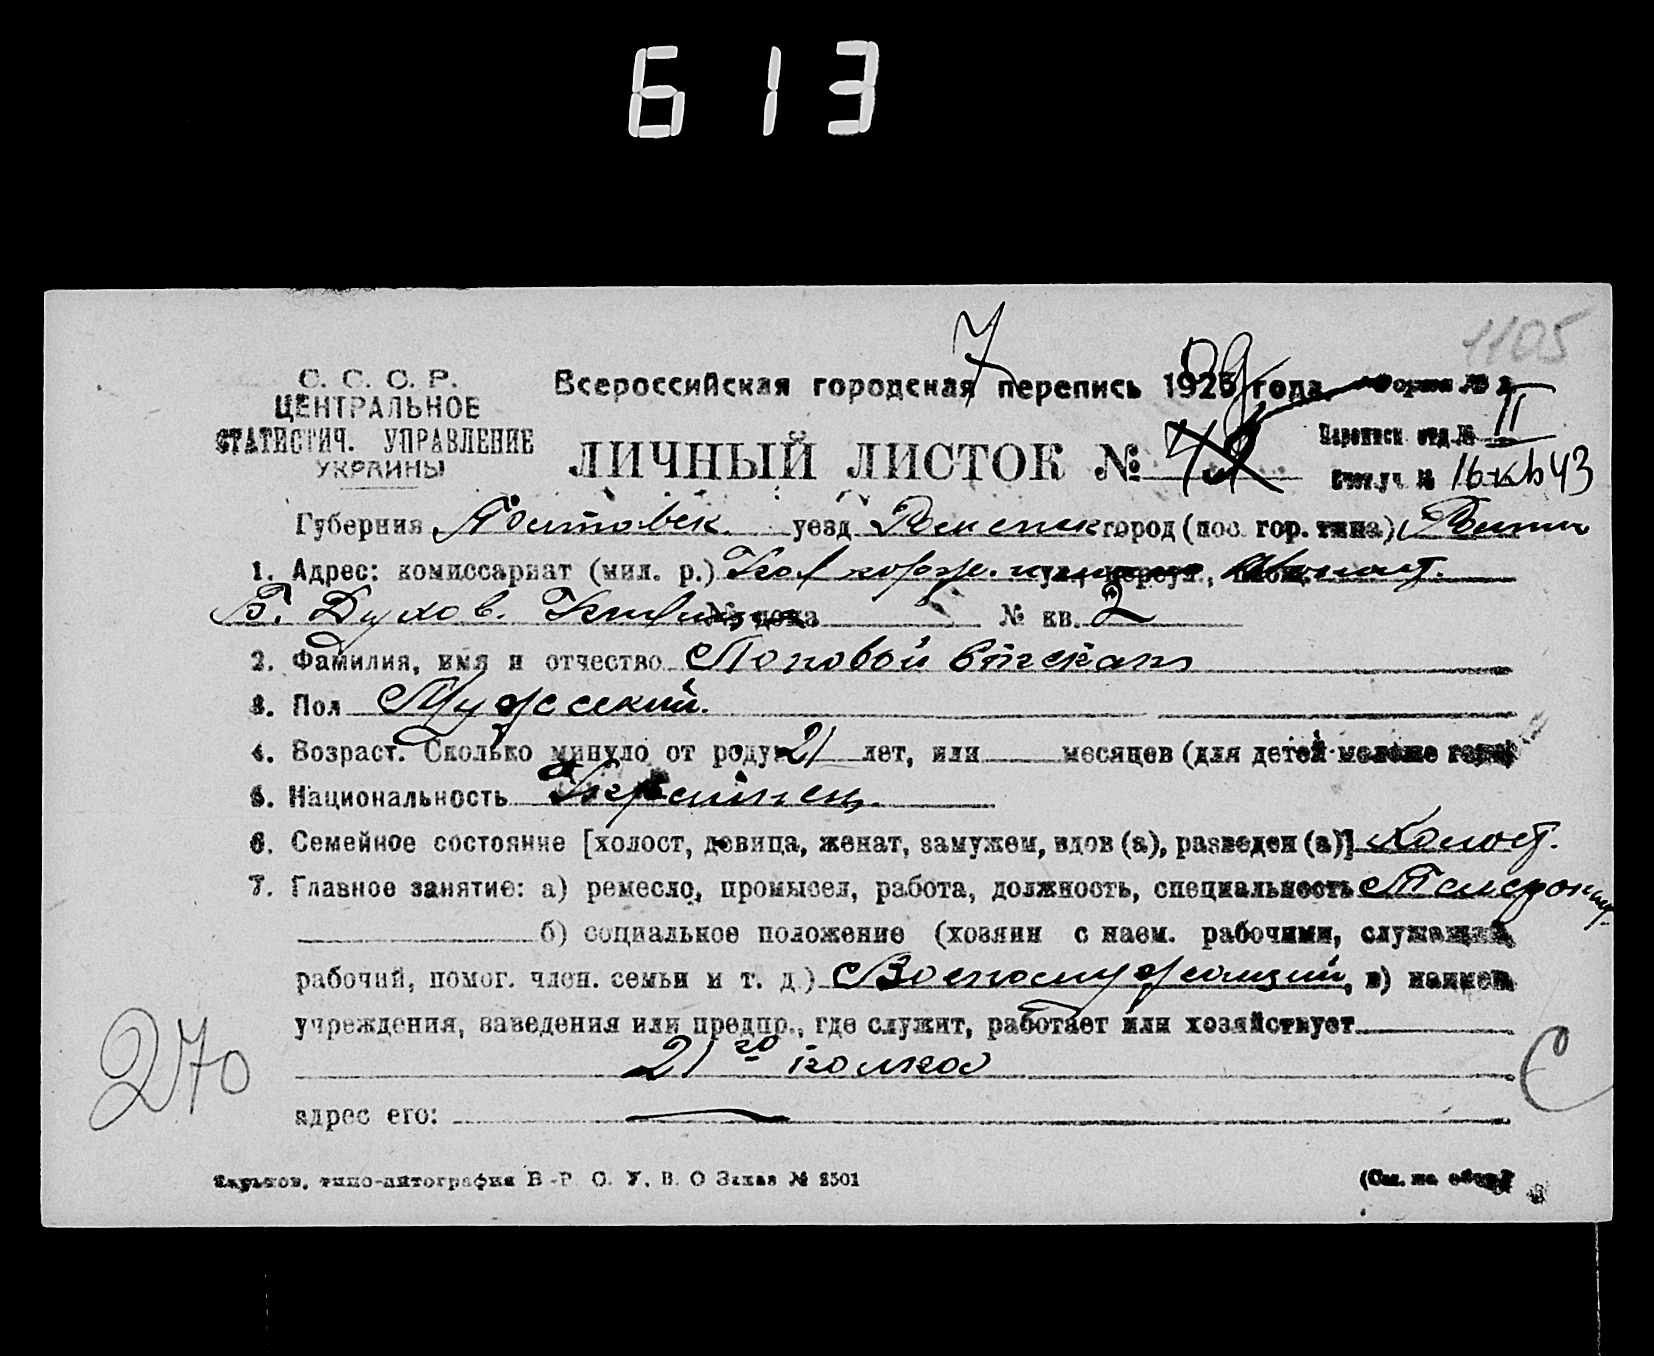 613
1105
7
С. С. С. Р.
ЦЕНТРАЛЬНОЕ
СТАТИСТИЧ. УПРАВЛЕНИЕ
УКРАИНЫ
Всероссийская городская перепись 1923 года.
Форма № 2
ЛИЧНЫЙ ЛИСТОК №
Переписн отд. № II
Счетн. уч № 16 кв 43
Губерния Полтавск уезд Роменск город (пос. гор. типа) Ромны
1. Адрес: комиссариат (мил. р.)
№ дома № кв. 2
2. Фамилия, имя и отчество Поповой
3. Пол Мужсский.
4. Возраст. Сколько минуло от роду 21 лет, или месяцев (для детей моложе года)
5. Национальность Украинец.
6. Семейное состояние [холост, девица, женат, замужем, вдов (а), разведен (а)] Холост.
7. Главное занятие: а) ремесло, промысел, работа, должность, специальность Телефонист
б) социальное положение (хозяин с наем. рабочими, служащий,
рабочий, помог. член. семьи и т. д.) Военослужащий, в) наимен
учреждения, заведения или предпр., где служит, работает или хозяйствует
21го полка
адрес его: —
270
С
Харьков, типо-литография В.-Р. С. У. В. О Заказ № 2501
(См. на обор.)